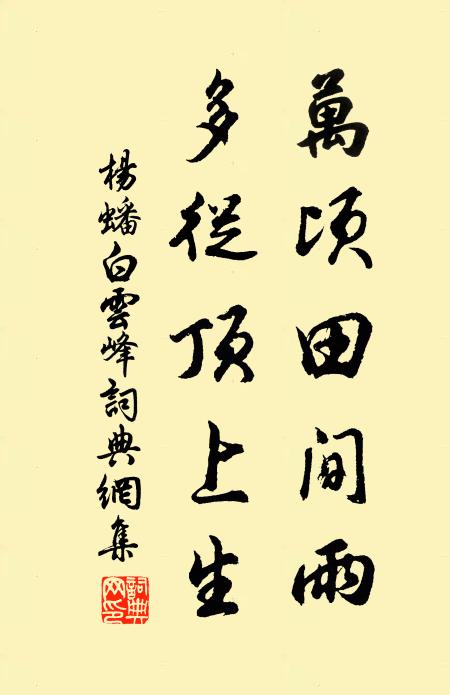 萬頃田间雨
多從頂上生
楊蟠白雲峰詞典網集
詞典网印